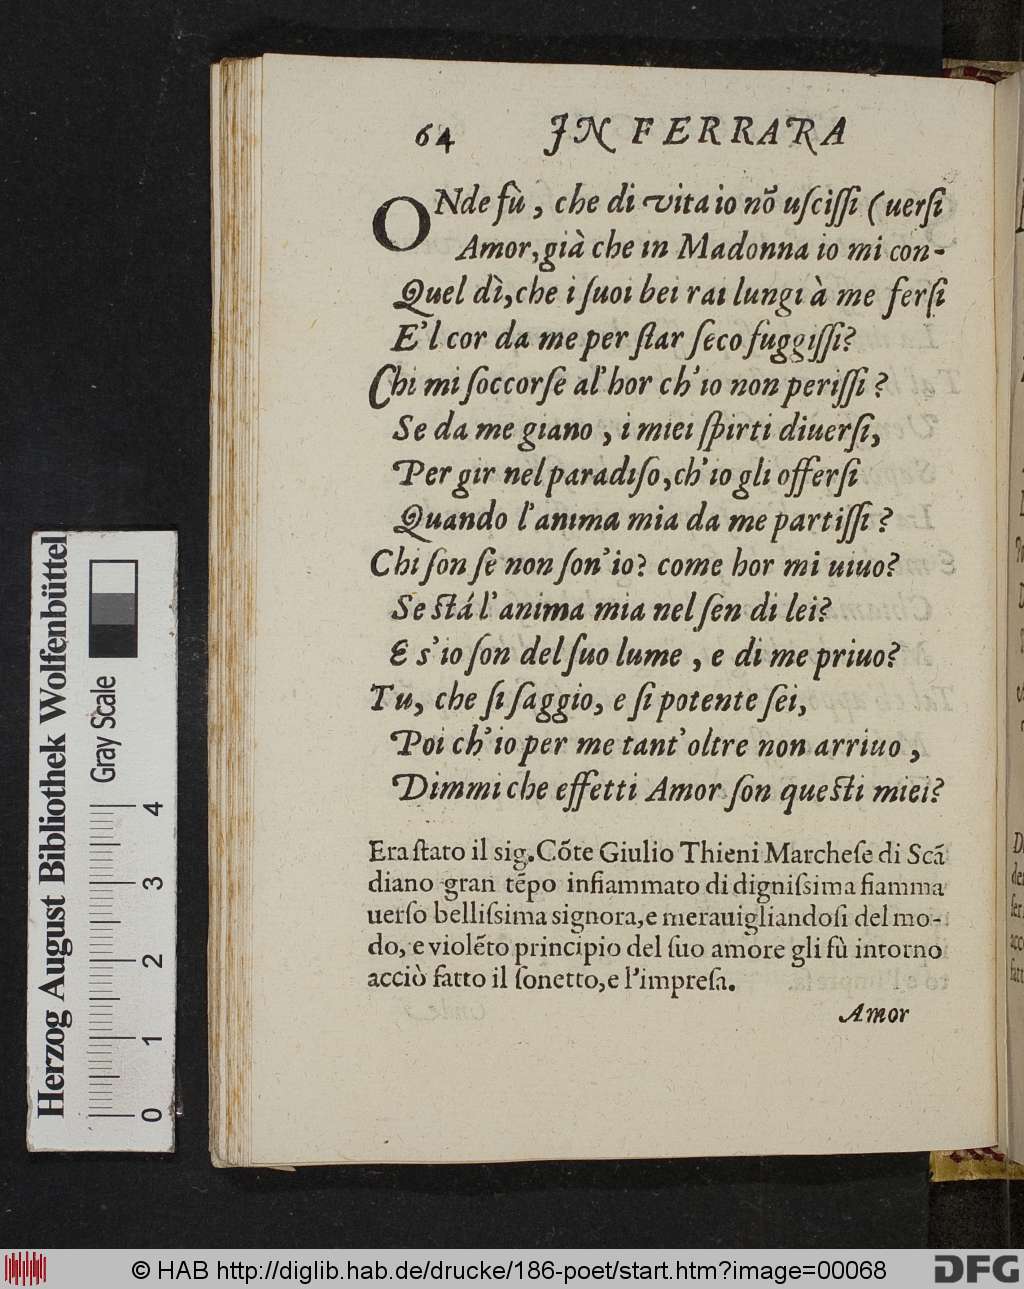 64 IN FERRARA
ONde fù, che di vita io nõ uſciſſi (uerſi
Amor, già che in Madonna io mi con-
Quel dì, che i ſuoi bei rai lungi à me ferſi
E'l cor da me per ſtar ſeco fuggiſſi?
Chi mi ſoccorſe al'hor ch'io non periſſi?
Se da me giano, i miei ſpirti diuerſi,
Per gir nel paradiſo, ch'io gli offerſi
Quando l'anima mia da me partiſſi?
Chi ſon ſe non ſon'io? come hor mi uiuo?
Se ſtá l'anima mia nel ſen di lei?
E s'io ſon del ſuo lume, e di me priuo?
Tu, che ſi ſaggio, e ſi potente ſei,
Poi ch'io per me tant'oltre non arriuo,
Dimmi che effetti Amor ſon queſti miei?
Era ſtato il sig. Cõte Giulio Thieni Marcheſe di Scã
diano gran tẽpo infiammato di digniſsima fiamma
uerſo belliſsima signora, e merauigliandoſi del mo-
do, e violẽto principio del ſuo amore gli fù intorno
acciò fatto il ſonetto, e l'impreſa.
Amor
Herzog August Bibliothek Wolfenbüttel
Gray Scale
0 1 2 3 4
© HAB http://diglib.hab.de/drucke/186-poet/start.htm?image=00068
DFG